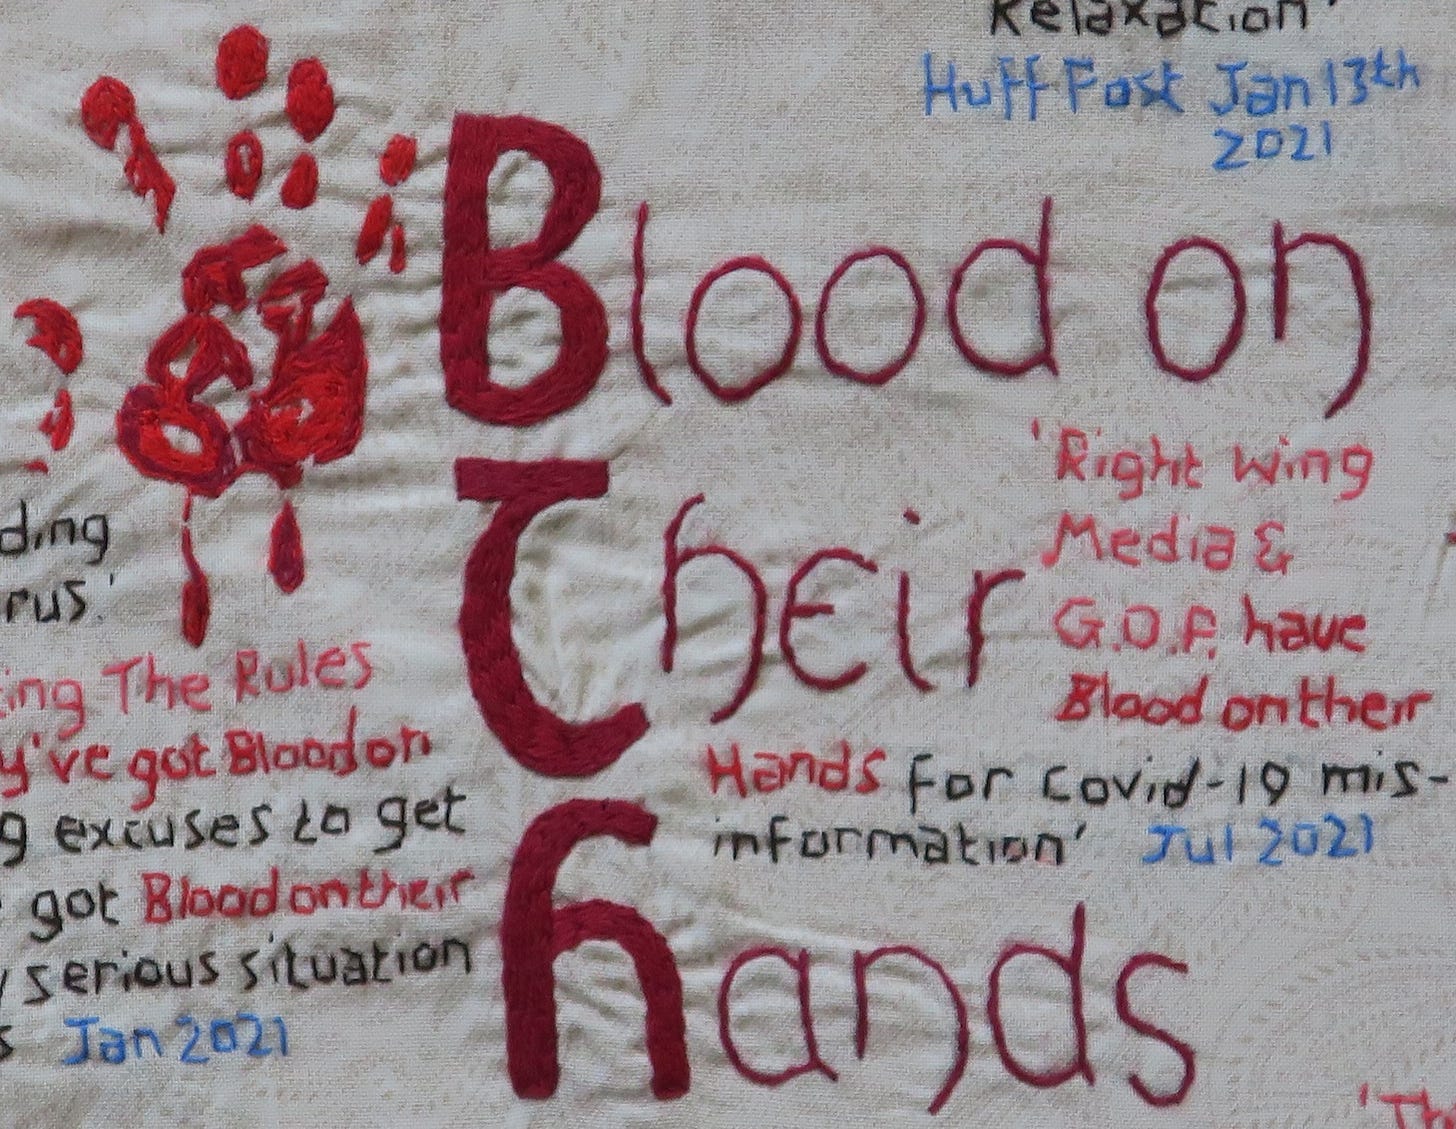 Relaxation'
Huff Post Jan 13th
2021
Blood on
'Right wing
Media &
G.O.P. have
Blood on their
Hands for Covid-19 mis-
information' Jul 2021
Their
hands
ding
rus.'
ing The Rules
y've got Blood on
g excuses to get
got Blood on their
y serious situation
s Jan 2021
'Th